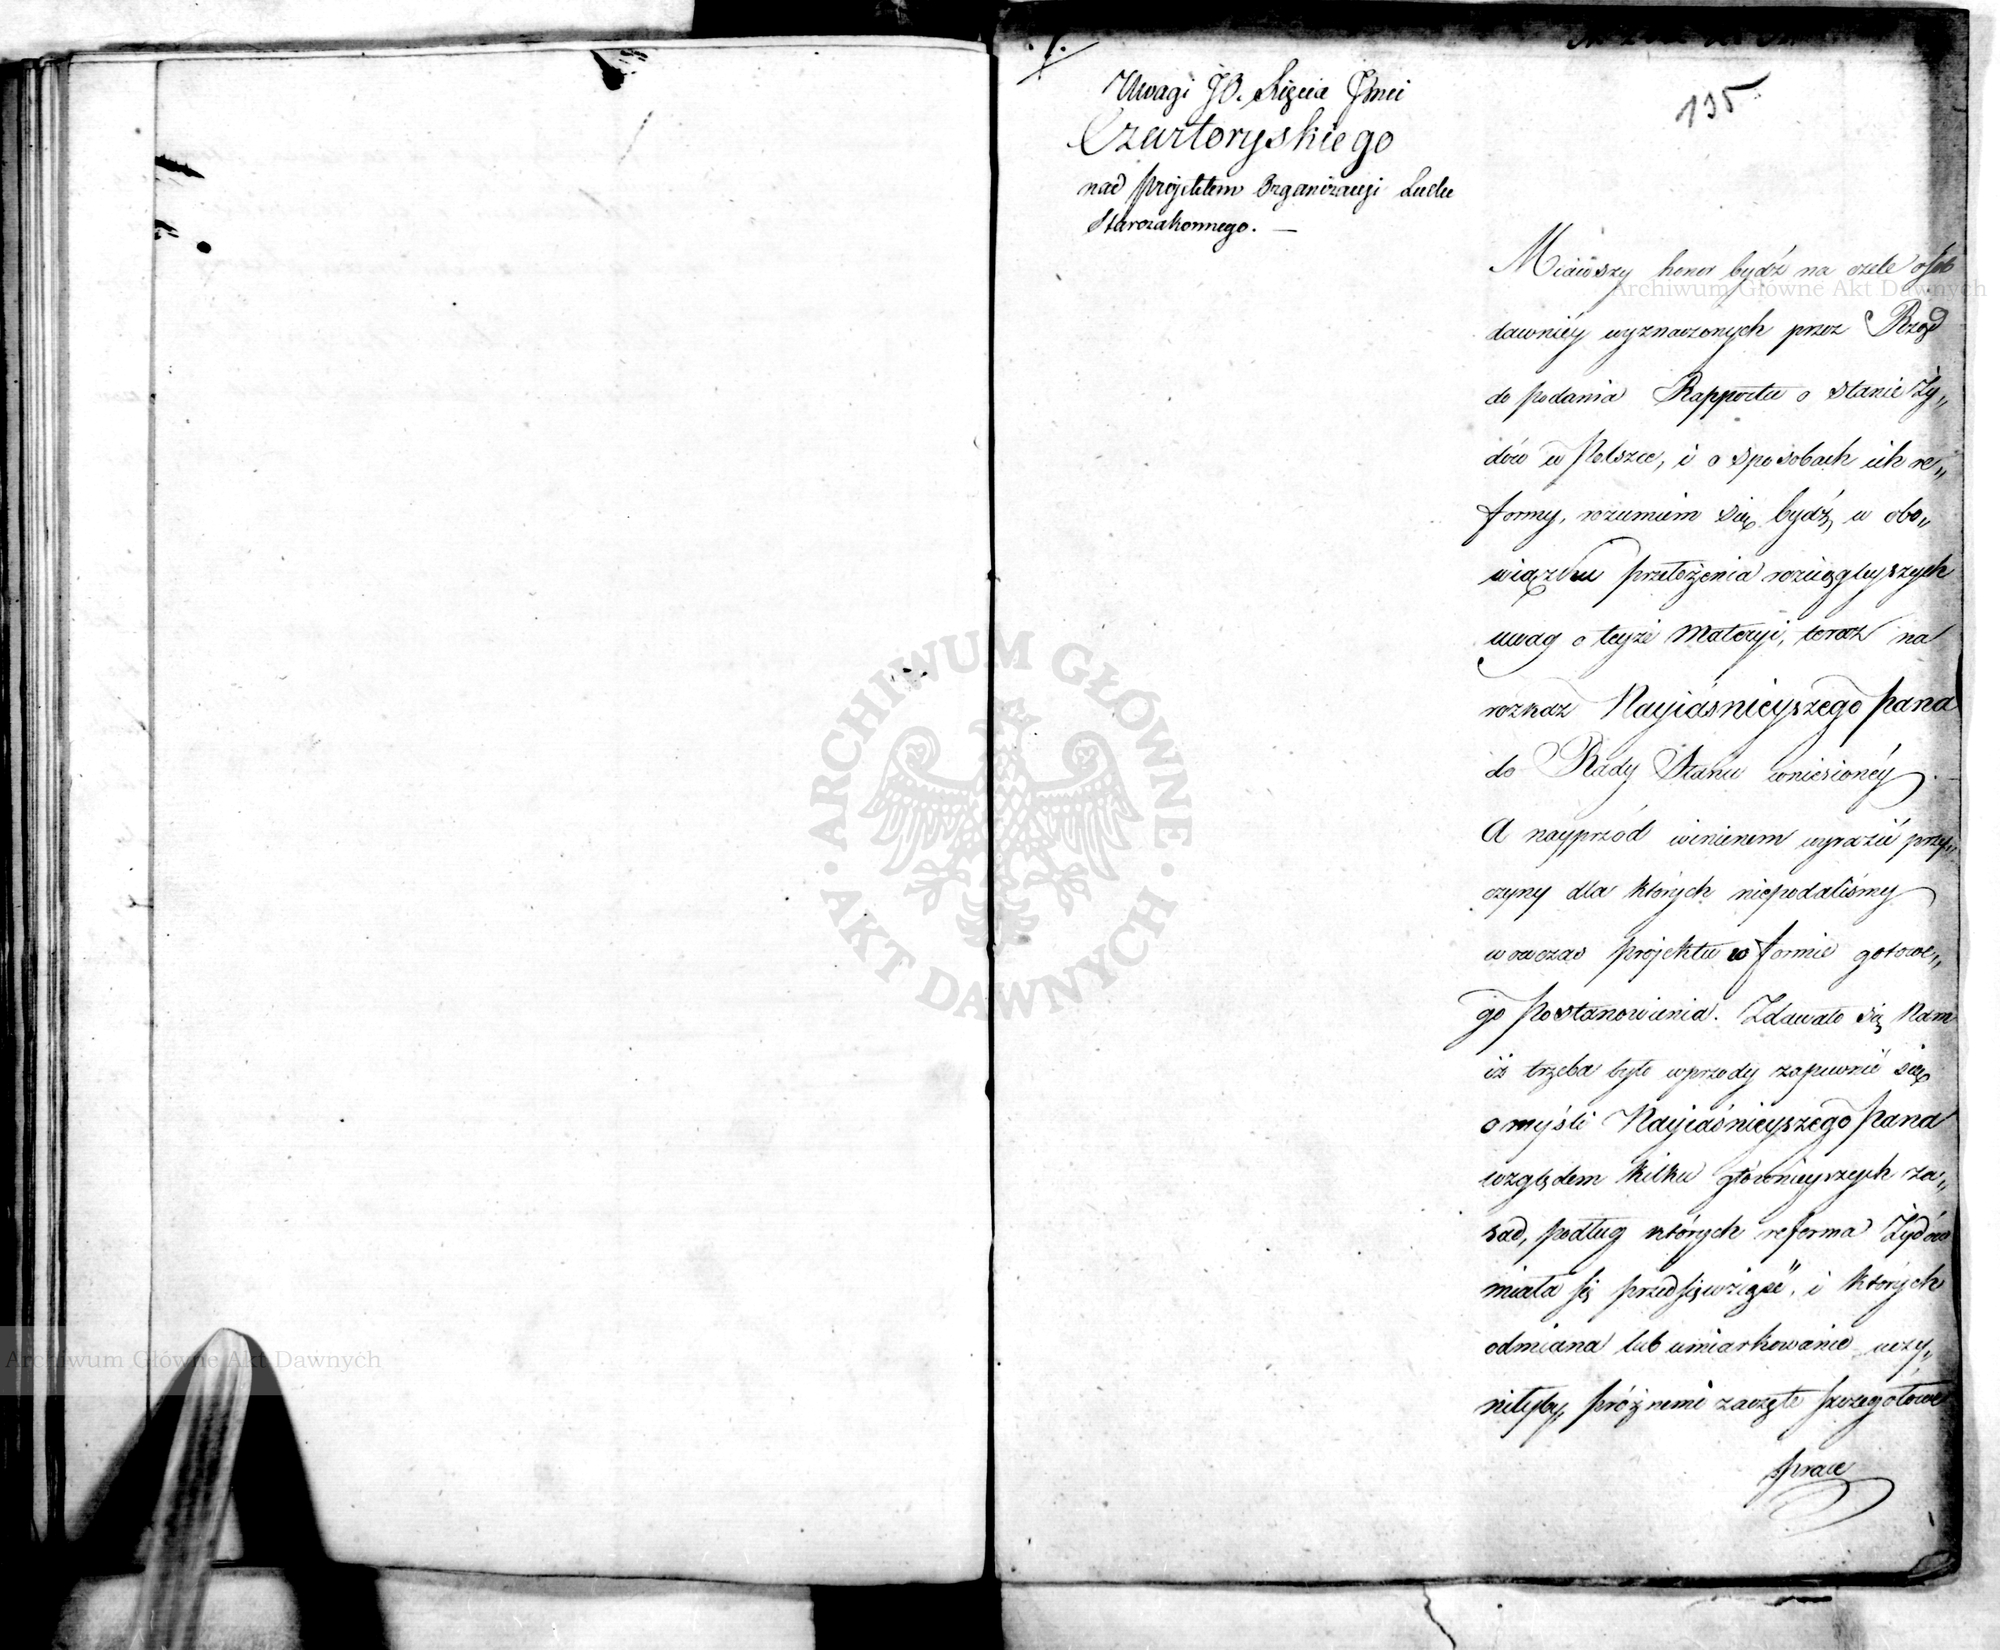 Uwagi JO. Xięcia Jmci
Czartoryskiego
nad projektem Organizacyi Ludu
Starozakonnego. —
135
Miawszy honor bydź na czele osób
dawniéy wyznaczonych przez Rząd
do podania Rapportu o stanie Ży„
dów w Polszcze, i o sposobach ich re„
formy, rozumiem się bydź w obo„
wiązku przełożenia rozciągleyszych
uwag o teyże materyi, teraz na
rozkaz Nayiaśnieyszego Pana
do Rady Stanu wniesionéy.
A nayprzód winienem wyrazić przy„
czyny dla których niepodaliśmy
wówczas projektu w formie gotowe„
go Postanowienia. Zdawało się Nam
iż trzeba było wprzody zapewnić się
o myśli Nayiaśnieyszego Pana
względem kilku głównieyszych za„
sad, podług których reforma Żydów
miała się przedsięwziąść, i których
odmiana lub umiarkowanie uczy„
niłyby próżnemi zaczęte szczegółowe
prace
Archiwum Główne Akt Dawnych
Archiwum Główne Akt Dawnych
ARCHIWUM GŁÓWNE · AKT DAWNYCH ·